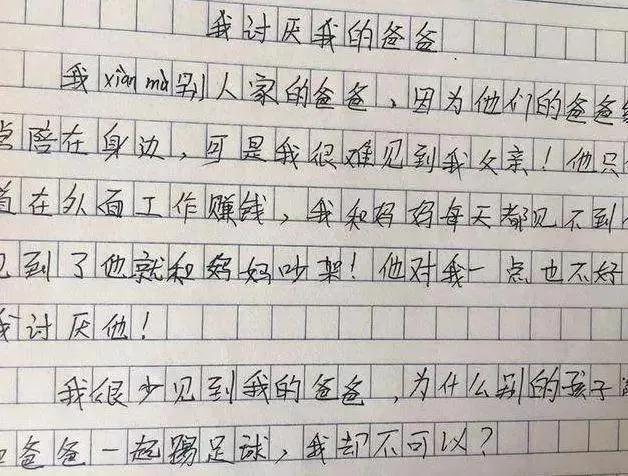 我讨厌我的爸爸
我xiàn mù别人家的爸爸，因为他们的爸爸
在身边，可是我很难见到我父亲！他只
在外面工作赚钱，我和妈妈每天都见不到
到了他就和妈妈吵架！他对我一点也不好
我讨厌他！
我很少见到我的爸爸，为什么别的孩子
爸爸一起踢足球，我却不可以？